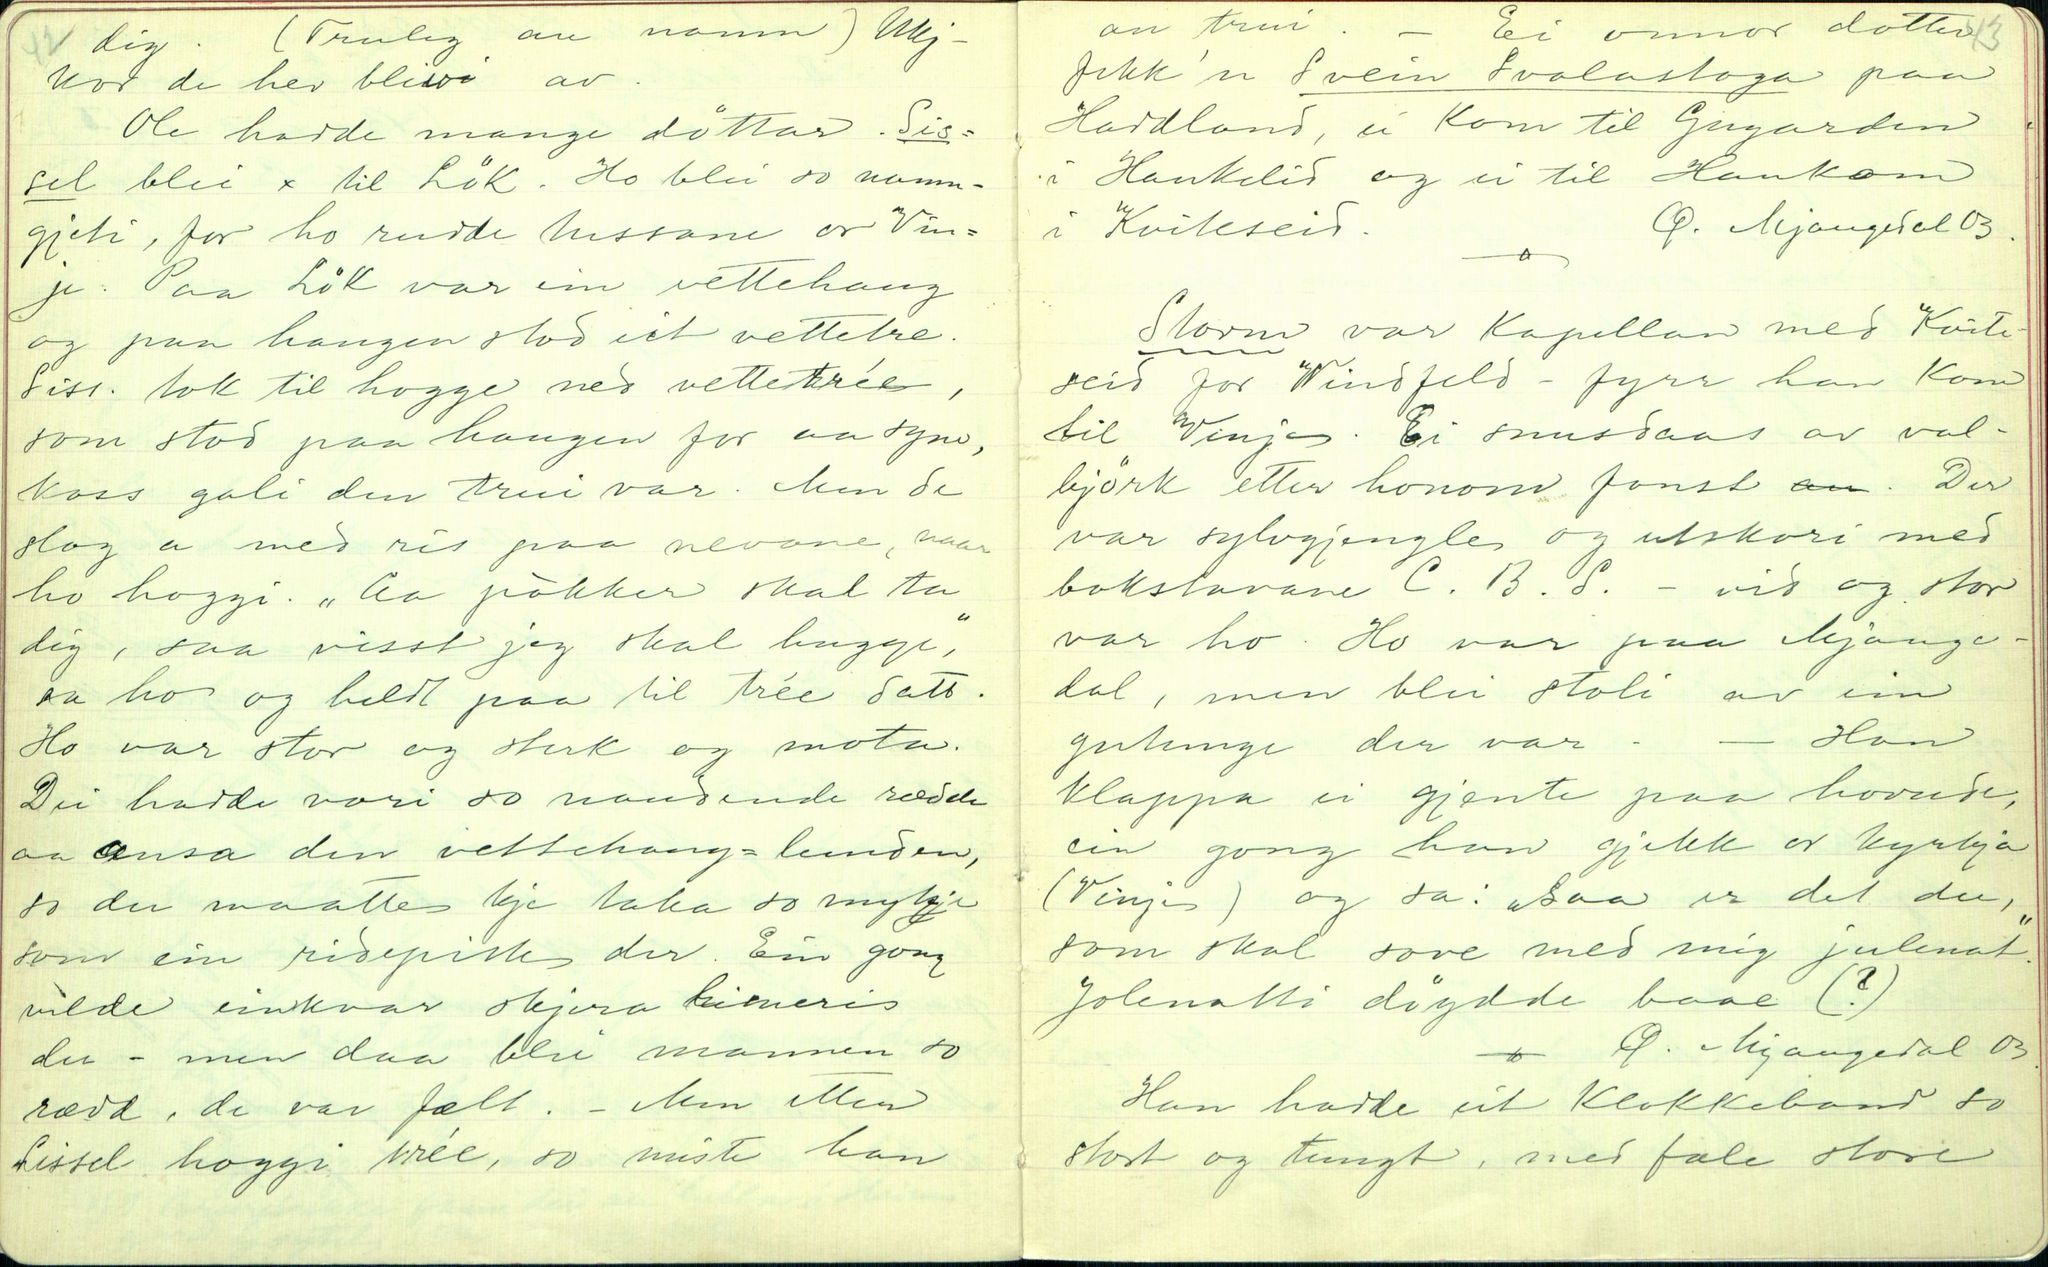 42
dig. (Truleg au namn) Ikkj-
kor de hev blivi av.
Ole hadde mange döttar. Sis-
sel blei x til Lök. Ho blei so namn-
gjeti, for ho rudde tussane or Vin-
je. Paa Lök var ein vettehaug
og paa haugen stod eit vettetre.
Siss. tok til hogge ned vettetrée,
som stod paa haugen for aa syne,
koss gali den trui var. Men de
slog a med ris paa nevane, naar
ho hoggi. „Aa pökker skal ta
dig, saa visst jeg skal hugge",
sa ho og heldt paa til trée datt.
Ho var stor og sterk og mota.
Dei hadde vori so naudende rædde
aa ansa den vettehaug-lunden,
so dei maatte kje taka so mykje
som ein ridepisk der. Ein gong
vilde einkvar skjera limeris
der - men daa blei mannen so
rædd, de var fælt. - Men etter
Sissel hoggi trée, so miste han
43
an trui. - Ei onnor dotter
fekk'n Svein Svalastoga paa
Haddland, ei kom til Gugarden
i Haukelid og ei til Haukom
i Kviteseid. Ø. Mjaugedal 03.
Storm var kapellan med Kvite-
seid for Windfeld - fyrr han kom
til Vinje. Ei snusdaas av val-
björk etter honom fanst. Der
var sylvgjengle og utskori med
bokstavane C. B. S. - vid og stor
var ho. Ho var paa Mjauge-
dal, men blei stoli av ein
gutunge der var. - Han
klappa ei gjente paa hovude,
ein gong han gjekk or kyrkja
(Vinje) og sa: „Saa er det du,
som skal sove med mig julenat".
Jolenatti döydde baae (?)
Ø. Mjaugedal 03
Han hadde eit klokkeband so
stort og tungt, med fæle store